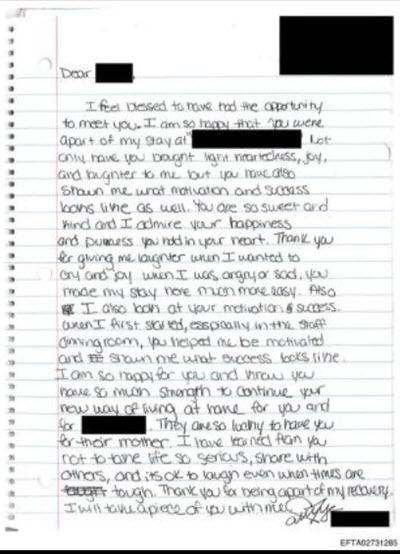 Dear
I feel blessed to have had the opportunity
to meet you. I am so happy that you were
apart of my stay at" Not
only have you bought light heartedness, joy,
and laughter to me but you have also
shown me what motivation and success
looks like as well. You are so sweet and
kind and I admire your happiness
and pureness you hold in your heart. Thank you
for giving me laughter when I wanted to
cry and joy when I was angry or sad, you
made my stay here much more easy. Also
I also look at your motivation & success.
when I first started, esspically in the staff
dinning room, you helped me be motivated
and shown me what success looks like.
I am so happy for you and know you
have so much strength to continue your
new way of living at home for you and
for They are so lucky to have you
for their mother. I have learned from you
not to take life so serious, share with
others, and its ok to laugh even when times are
tough. Thank you for being apart of my recovery.
I will take a piece of you with me.
EFTA02731285